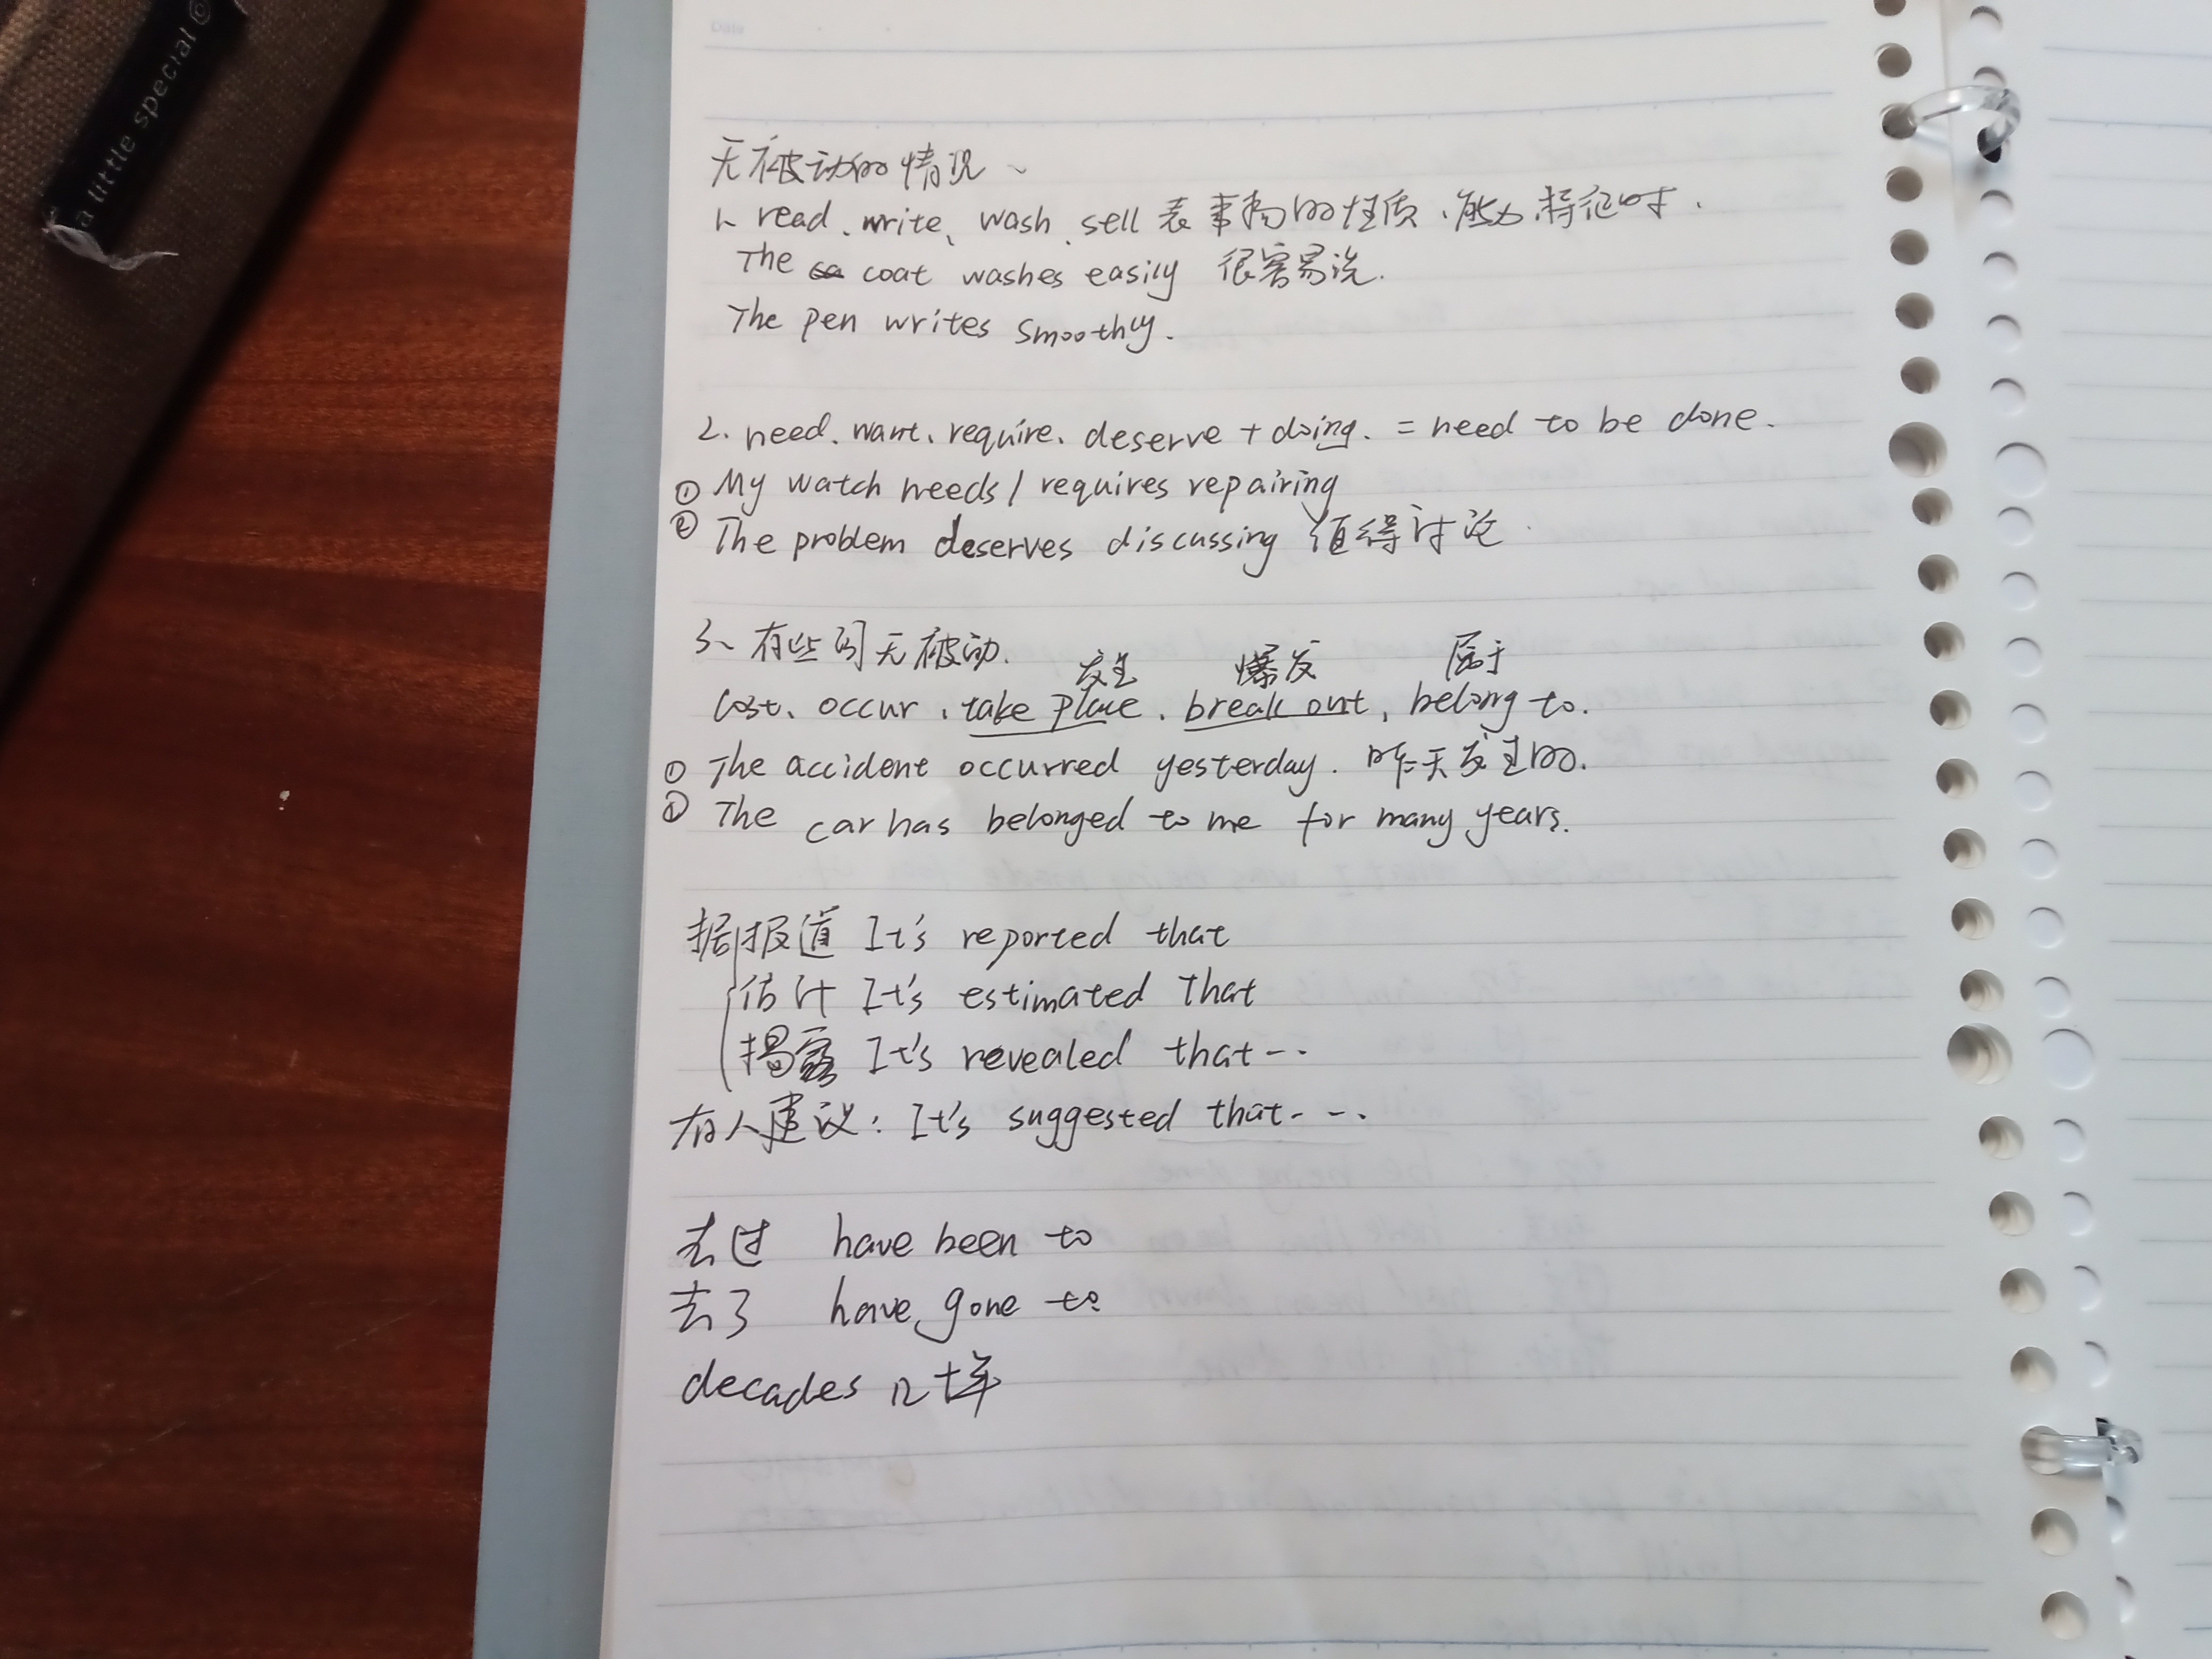 a little special
Date
无被动的情况、
1、read、write、wash、sell 表事物的性质、能力、特征时.
The coat washes easily 很容易洗.
The pen writes smoothly.
2. need、want、require、deserve + doing. = need to be done.
① My watch needs / requires repairing
② The problem deserves discussing 值得讨论.
3、有些词无被动.
发生 爆发 属于
cost、occur、take place、break out, belong to.
① The accident occurred yesterday. 昨天发生的.
② The car has belonged to me for many years.
据报道 It's reported that
估计 It's estimated that
揭露 It's revealed that...
有人建议: It's suggested that...
去过 have been to
去了 have gone to
decades 几十年